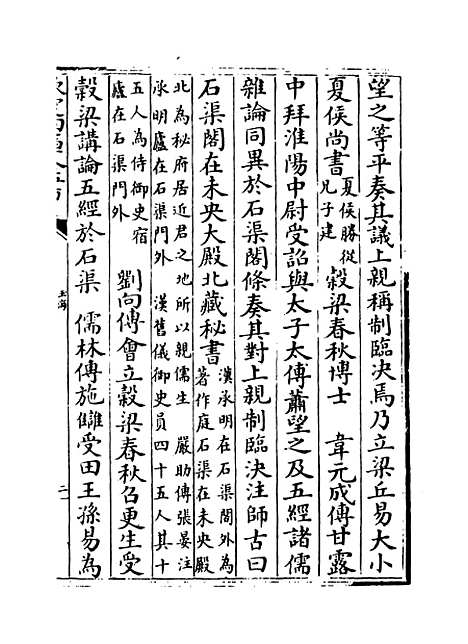 望之等平奏其議上親稱制臨决焉乃立梁丘易大小
夏侯尚書夏侯勝從兄子建 穀梁春秋博士 韋元成傳甘露
中拜淮陽中尉受詔與太子太傅蕭望之及五經諸儒
雜論同異於石渠閣條奏其對上親制臨決注師古曰
石渠閣在未央大殿北藏秘書漢承明在石渠閣外為著作庭石渠在未央殿
北為秘府居近君之地所以親儒生 嚴助傳張晏注承明廬在石渠門外 漢舊儀御史員四十五人其十
五人為侍御史宿廬在石渠門外 劉向傳會立穀梁春秋召更生受
穀梁講論五經於石渠 儒林傳施讎受田王孫易為
玉海
二